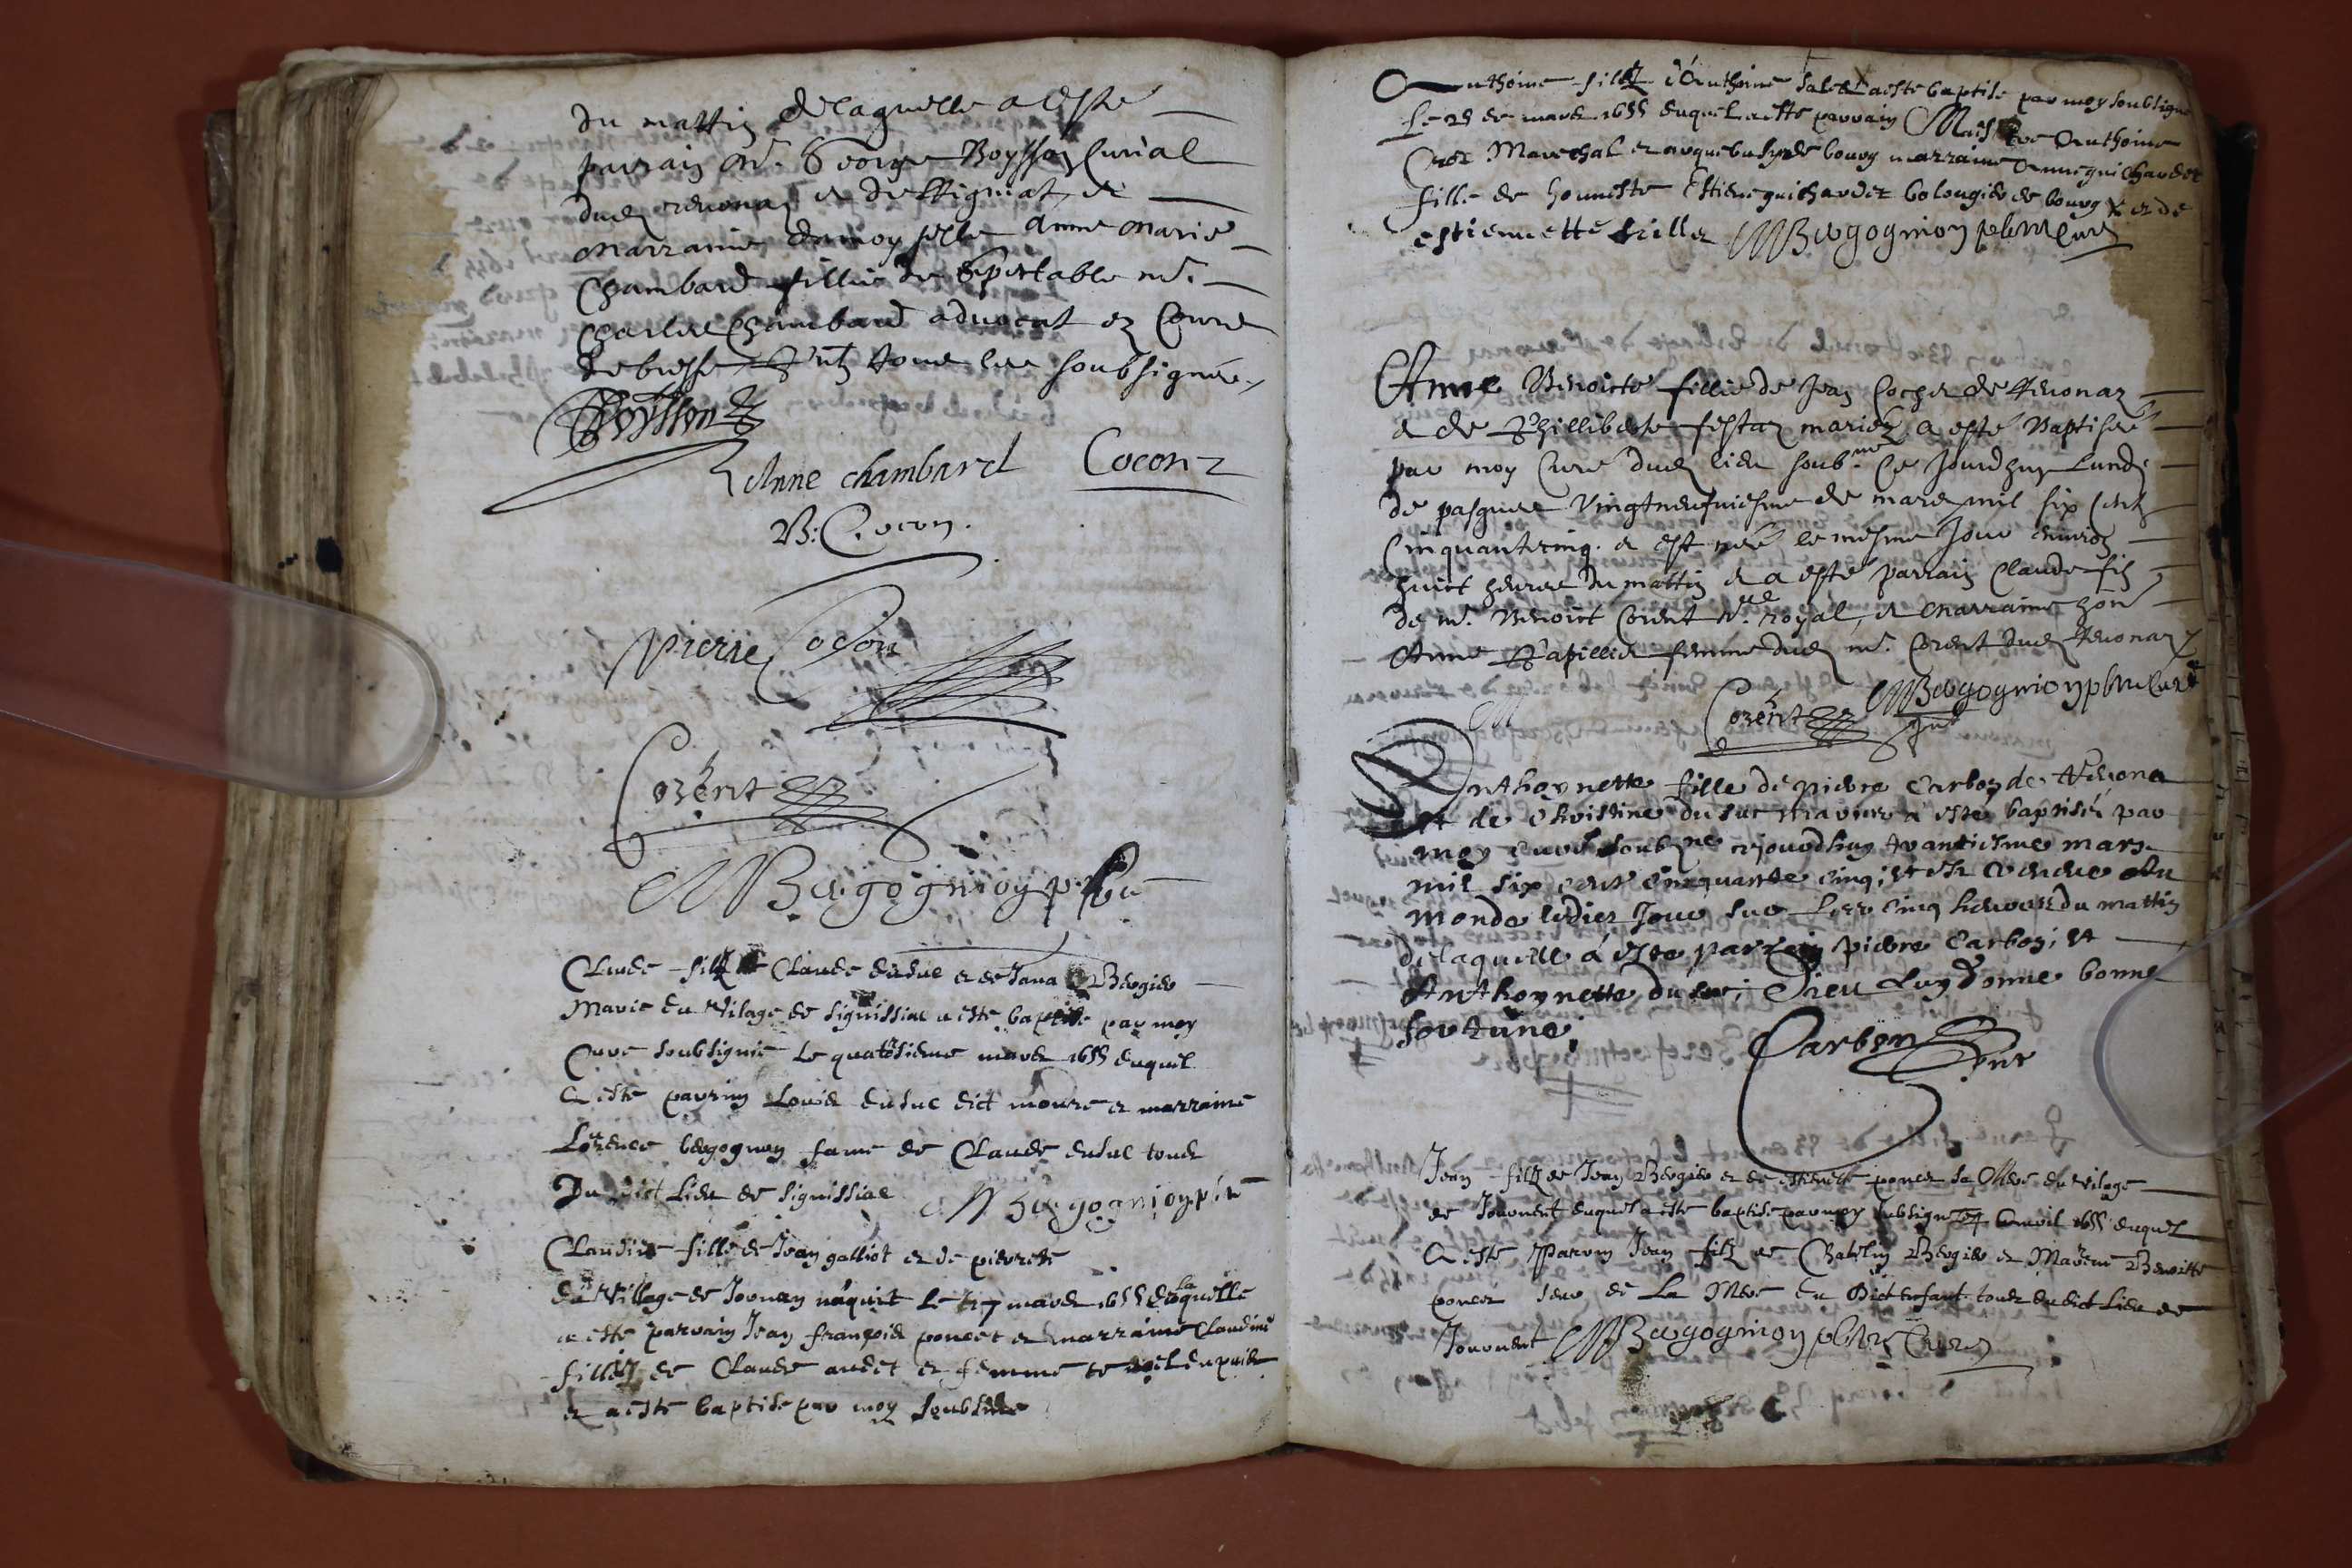 du mattin de laquelle a esté
parrain Mr. George Boysson Curial
dud Revona et de Signiat et
marraine damoyselle Anne Marie
Chambard fillie de Spectable mr.
Charles Chambard advocat ez Cours
de bresse tous les soubsignés
Boysson
Anne chambard Cocon
B: Cocon.
pierre Cocon
Corent
MBergognion pbre
Claude fillz de Claude dusuc et de Jana Bergier
Marie du vilage de signissiac a esté baptisé par moy
Curé soubsigné le quatesieme mars 1655 duquel
a esté parrin Louis dusuc dict moure et marraine
Lorence bergognon fame de Claude dusuc tous
Du dict Lieu de signissiac MBergognion pbre
Claudine fille de Jean galliot et de pierrete
du village de Jouvan naquit le 17 mars 1655 de laquelle
a esté parrain Jean françois poncet et marraine Claudine
fillez de Claude audet et femme de
et a esté baptisé par moy soubsine
Anthoine fillz d'Anthoine a esté baptisé par moy soubsigné
Le 28 de mars 1655 duquel a esté parrain Maistre Anthoine
Marechal et arquebusyer de bourg marraine Anne guichardet
fille de honneste Estiene guichardet bolongier de bourg et de
estiennette MBergognion pbre Curé
Anne Benoicte fillie de Jean Cocher de Revonaz
et de Philliberte festaz mariez a esté Baptisée
par moy Curé dud lieu soub.né Ce Jourdhuy Lundi
de pasques Vingtneufviesme de mars mil six cent
Cinquantcinq. et est née le mesme Jour environ
huict heures du mattin et a esté parrain Claude fis
de mr. Benoict Corent Nre. royal, et Marraine hon
Anne Papillie femme dud mr. Corent dud Revonaz
Corent MBergognion pbre Curé
Anthoynette fille de pierre Carbon de Revona
et de Christine du suc mariés a esté baptisée par
moy curé soubzné cejourdhuy trantiesme mars
mil six cent cinquante cinq; et est venue au
monde ledict Jour sur les cinq heures du mattin
delaquelle à esté parrain pierre Carbon; et
Anthoynette du suc; Dieu Luy donne bonne
fortune;
Carbon
Jean fillz de Jean Bergier et de estienete poncet sa Mere du vilage
de Jouvent duquel a esté baptisé par moy subsigné 4 apvril 1655 duquel
a esté Parrin Jean fillz de Chatelin Bergier et Marene Benoitte
poncet seur de La Mere du Dict enfant tous dudict Lieu de
Jouvent MBergognion pbre Curé